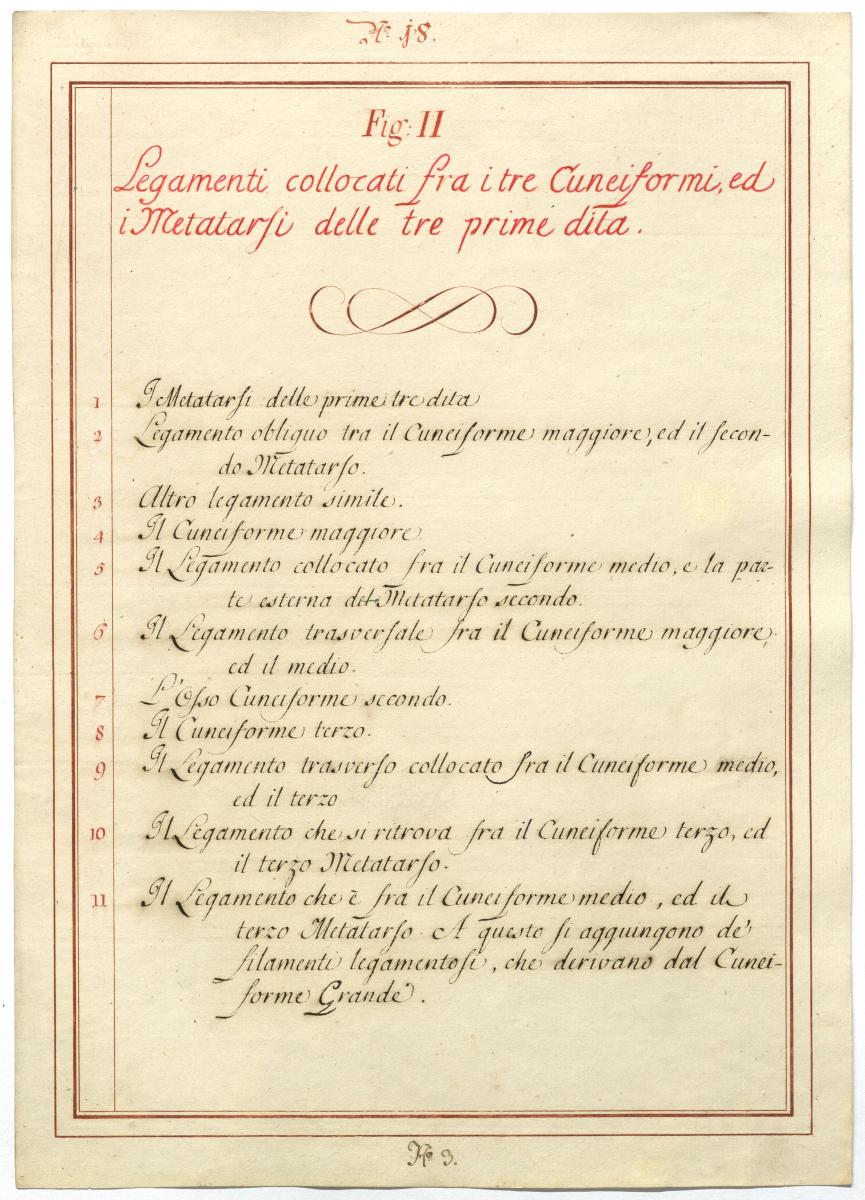 N.º 18.
Fig: II
Legamenti collocati fra i tre Cuneiformi, ed
i Metatarsi delle tre prime dita.
1 I Metatarsi delle prime tre dita
2 Legamento obliquo tra il Cuneiforme maggiore, ed il secon-
do Metatarso.
3 Altro legamento simile.
4 Il Cuneiforme maggiore
5 Il Legamento collocato fra il Cuneiforme medio, e la par-
te esterna del Metatarso secondo.
6 Il Legamento trasversale fra il Cuneiforme maggiore,
ed il medio.
7 L'Osso Cuneiforme secondo.
8 Il Cuneiforme terzo.
9 Il Legamento trasverso collocato fra il Cuneiforme medio,
ed il terzo
10 Il Legamento che si ritrova fra il Cuneiforme terzo, ed
il terzo Metatarso.
11 Il Legamento che è fra il Cuneiforme medio, ed il
terzo Metatarso. A questo si aggiungono de'
filamenti legamentosi, che derivano dal Cunei-
forme Grande.
N.º 3.